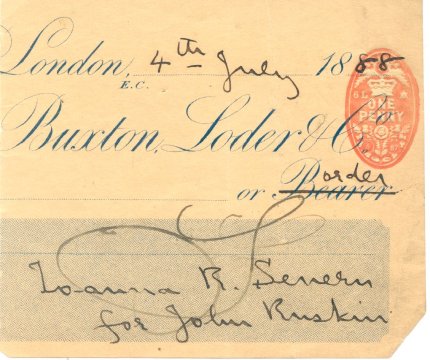 London, 4th July 1888
E.C.
Buxton, Loder & Co.
or Bearer order
Joanna R. Severn
for John Ruskin
ONE
PENNY